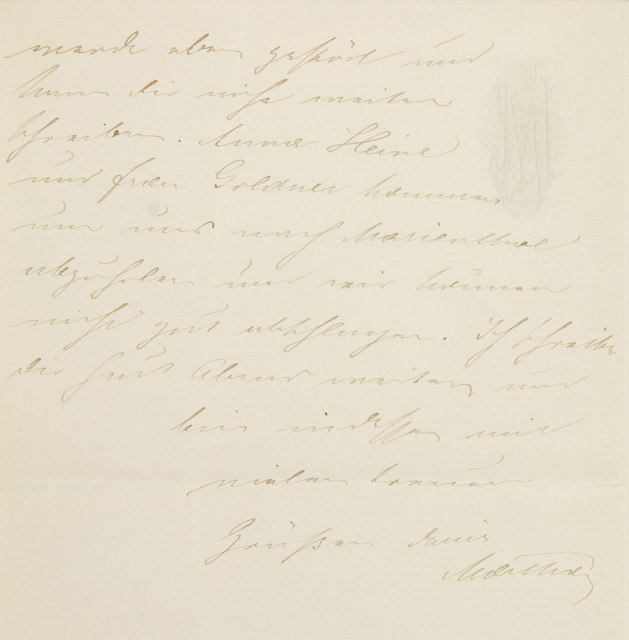 werde eben gestört und
kann dir nicht weiter
schreiben. Anna Heine
und Frau Goldner kommen
um uns nach Marienthal
abzuholen und wir können
nicht gut abschlagen. Ich schreibe
dir heut Abend weiter und
bin indessen mit
vielen treuen
Grüßen deine
Martha